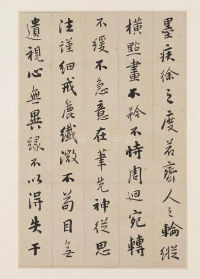 墨疾徐之度若人之輪縱
橫點畫不矜不恃周迴宛轉
不緩不急意在筆先神從思
注謹細戒麄纖微不苟目無
遺視心無異緣不以得失干